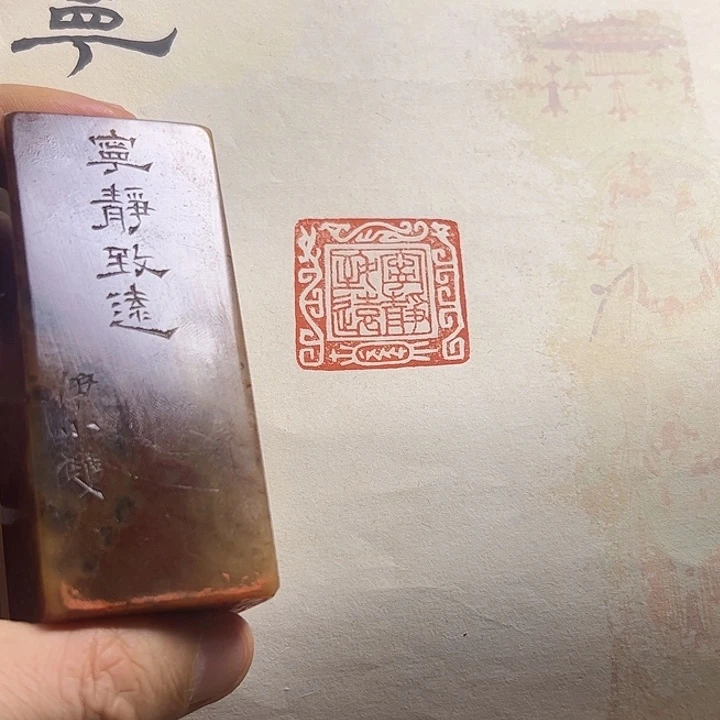 寧
寧靜致遠
寧靜
致遠